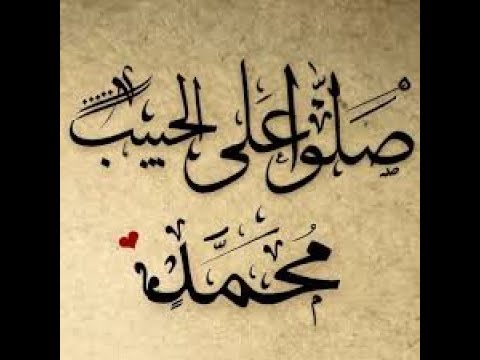 صَلُّوا عَلى الحبيب
مُحَمَّدٍ